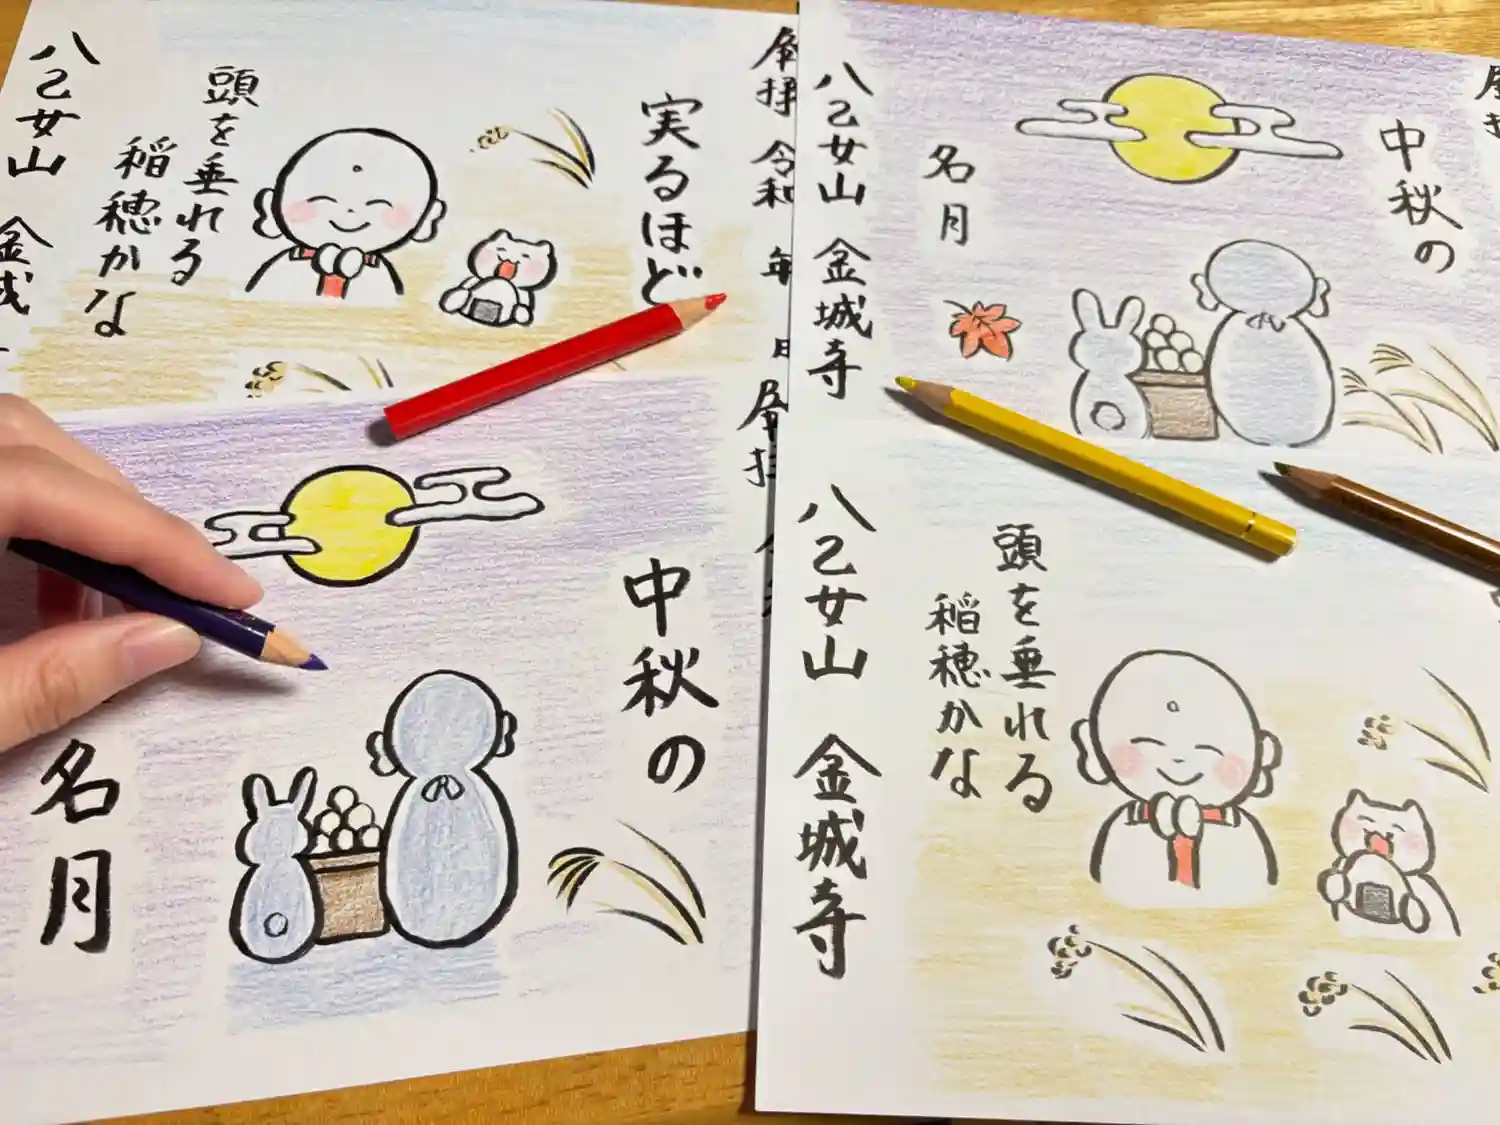 実るほど
頭を垂れる
稲穂かな
八乙女山 金城
拝 令和 年 日
中秋の
名月
八乙女山 金城寺
中秋の
名月
頭を垂れる
稲穂かな
八乙女山 金城寺